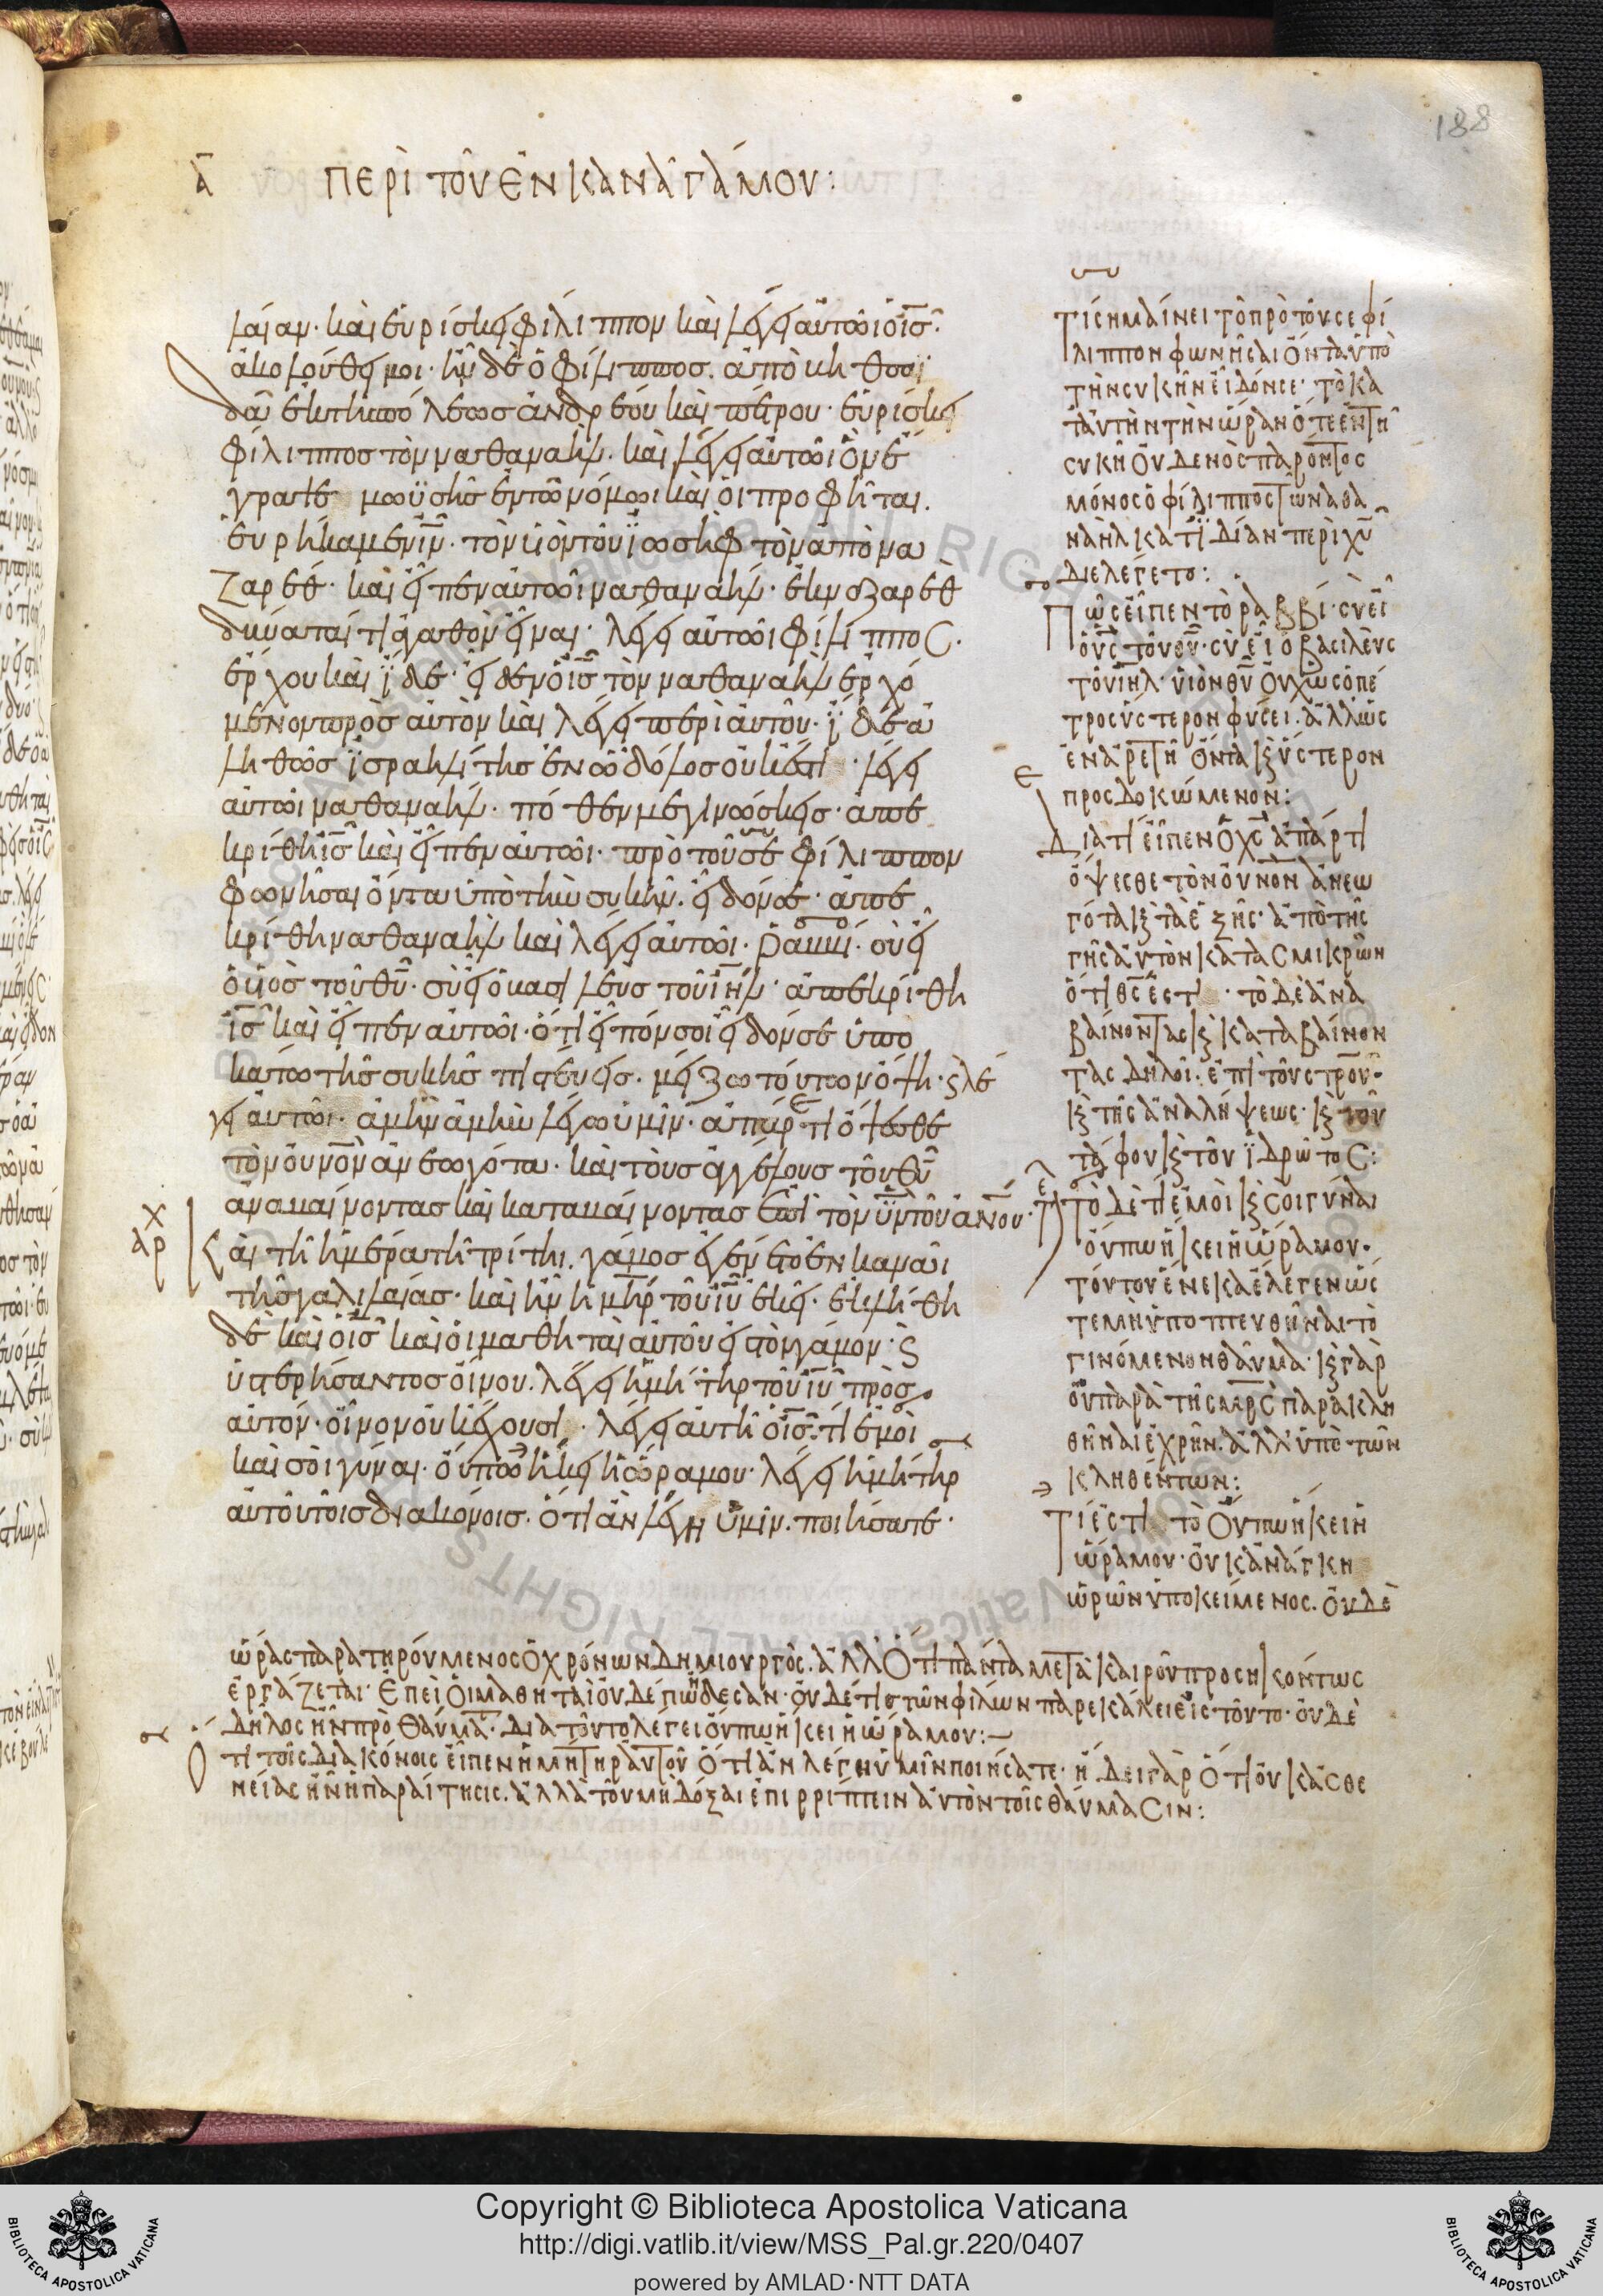 188
α περὶ τοῦ ἐν κανᾶ γάμου:
λαίαν· καὶ εὑρίσκει φίλιππον καὶ λέγει αὐτῶι ὁ ις·
ἀκολούθει μοι· ἦν δὲ ὁ φίλιππος ἀπὸ βηθσαϊ
δὰ ἐκ τῆς πόλεως ἀνδρέου καὶ πέτρου· εὑρίσκει
φίλιππος τὸν ναθαναὴλ· καὶ λέγει αὐτῶι ὃν ἔ
γραψε μωϋσῆς ἐν τῶ νόμωι καὶ οἱ προφῆται.
εὑρήκαμεν ιν· τὸν υἱὸν τοῦ ϊωσὴφ τὸν ἀπὸ να
ζαρέθ· καὶ εἶπεν αὐτῶι ναθαναήλ· ἐκ ναζαρὲθ
δύναταί τι ἀγαθὸν εἶναι· λέγει αὐτῶι φίλιππος·
ἔρχου καὶ ϊδε· εἶδεν ὁ ις τὸν ναθαναὴλ ἐρχό
μενον πρὸς αὐτὸν καὶ λέγει περὶ αὐτοῦ· ϊδε ἀ
ληθῶς ϊσραηλίτης ἐν ὧ δόλος οὐκ ἔστι· λέγει
αὐτῶι ναθαναήλ· πόθεν με γινώσκεις· ἀπε
κρίθη ις καὶ εἶπεν αὐτῶι· πρὸ τοῦ σε φίλιππον
φωνῆσαι ὄντα ὑπὸ τὴν συκῆν· εἶδόν σε· ἀπε
κρίθη ναθαναὴλ καὶ λέγει αὐτῶι· ῥαββί· σὺ εἶ
ὁ υἱὸς τοῦ θυ· σὺ εἶ ὁ βασιλεὺς τοῦ ιηλ· ἀπεκρίθη
ις καὶ εἶπεν αὐτῶι· ὅτι εἶπόν σοι εἶδόν σε ὑπο
κάτω τῆς συκῆς πιστεύεις· μείζω τούτων ὄψη· ϗ λέ
γει αὐτῶι· ἀμὴν ἀμὴν λέγω ὑμῖν· ἀπάρτι ὄψεσθε
τὸν ουνον ἀνεωγότα· καὶ τοὺς ἀγγέλους τοῦ θυ
ἀναβαίνοντας καὶ καταβαίνοντας ἐπὶ τὸν υν τοῦ ανου·
χ
αρ
Καὶ τῆ ἡμέρα τῆ τρίτηι γάμος ἐγένετο ἐν κανᾶι
τῆς γαλιλαίας· καὶ ἦν ἡ μηρ τοῦ ιυ ἐκεῖ· ἐκλήθη
δὲ καὶ ὁ ις καὶ οἱ μαθηταὶ αὐτοῦ εἰς τὸν γάμον· ϗ
ὑστερήσαντος οἴνου· λέγει ἡ μήτηρ τοῦ ιυ πρὸς
αὐτόν· οἶνον οὐκ ἔχουσι· λέγει αὐτῆ ὁ ις· τί ἐμοὶ
καὶ σοὶ γύναι· οὔπω ἥκει ἡ ὥρα μου· λέγει ἡ μήτηρ
αὐτοῦ τοῖς διακόνοις· ὅτι ἂν λέγη ὑμῖν· ποιήσατε·
Τί σημαίνει τὸ πρὸ τοῦ σε φί
λιππον φωνῆσαι ὄντα ὑπὸ
τὴν συκῆν εἶδόν σε· τὸ κα
τ αὐτὴν τὴν ὥραν ὅτε ἐν τῆ
συκῆ οὐδενὸς παρόντος
μόνος ὁ φίλιππος τῶ ναθα
ναὴλ κατϊδίαν περὶ χυ
διελέγετο:
Πῶς εἶπεν τὸ ραββί· σὺ εἶ
ὁ υς τοῦ θυ· σὺ εἶ ὁ βασιλεὺς
τοῦ ιηλ· υἱὸν θυ οὐχ ὡς ὁ πέ
τρος ὕστερον φύσει· ἀλλ ὡς
ἐν ἀρετῆ ὄντα ϗ ὕστερον
προσδοκώμενον:
Διατί εἶπεν ὁ χς ἀπάρτι
ὄψεσθε τὸν ουνον ἀνεω
γότα ϗ τὰ ἑξῆς· ἀπὸ τῆς
γῆς αὐτὸν κατὰ σμικρὸν
ὅτι θς ἐστι· τὸ δὲ ἀνα
βαίνοντας ϗ καταβαίνον
τας δηλοῖ· ἐπὶ τοῦ στρου·
ϗ τῆς ἀναλήψεως· ϗ τοῦ
τάφου ϗ τοῦ ϊδρῶτος:
Τὸ δὲ τί ἐμοὶ ϗ σοι γύναι
οὔπω ἥκει ἡ ὥρα μου·
τούτου ἕνεκα ἔλεγεν ὥς
τε μὴ ὑποπτευθῆναι τὸ
γινόμενον θαῦμα· ϗ γὰρ
οὐ παρὰ τῆς μρς παρακλη
θῆναι ἐχρῆν· ἀλλ ὑπὸ τῶν
κληθέντων:
Τί ἐστι τὸ οὔπω ἥκει ἡ
ὥρα μου· οὐκ ἀνάγκη
ὡρῶν ὑποκείμενος· οὐδὲ
ὥρας παρατηρούμενος ὁ χρόνων δημιουργὸς· ἀλλ ὅτι πάντα μετὰ καιροῦ προσηκόντως
ἐργάζεται· ἐπεὶ οἱ μαθηταὶ οὐδέπω ἤδεσαν· οὐδέ τις τῶν φίλων παρεκάλει εἰς τοῦτο· οὐδὲ
δῆλος ἦν πρὸ θαύμα· διατοῦτο λέγει οὔπω ἥκει ἡ ὥρα μου:
Ὅτι τοῖς διακόνοις εἶπεν ἡ μήτηρ αὐτοῦ ὅτι ἂν λέγη ὑμῖν ποιήσατε· ἤδει γὰρ ὅτι οὐκ ἀσθε
νείας ἦν ἡ παραίτησις· ἀλλὰ τοῦ μὴ δόξαι ἐπιρρίπτειν αὐτὸν τοῖς θαύμασιν:
Copyright © Biblioteca Apostolica Vaticana
http://digi.vatlib.it/view/MSS_Pal.gr.220/0407
powered by AMLAD·NTT DATA
BIBLIOTECA APOSTOLICA VATICANA
BIBLIOTECA APOSTOLICA VATICANA